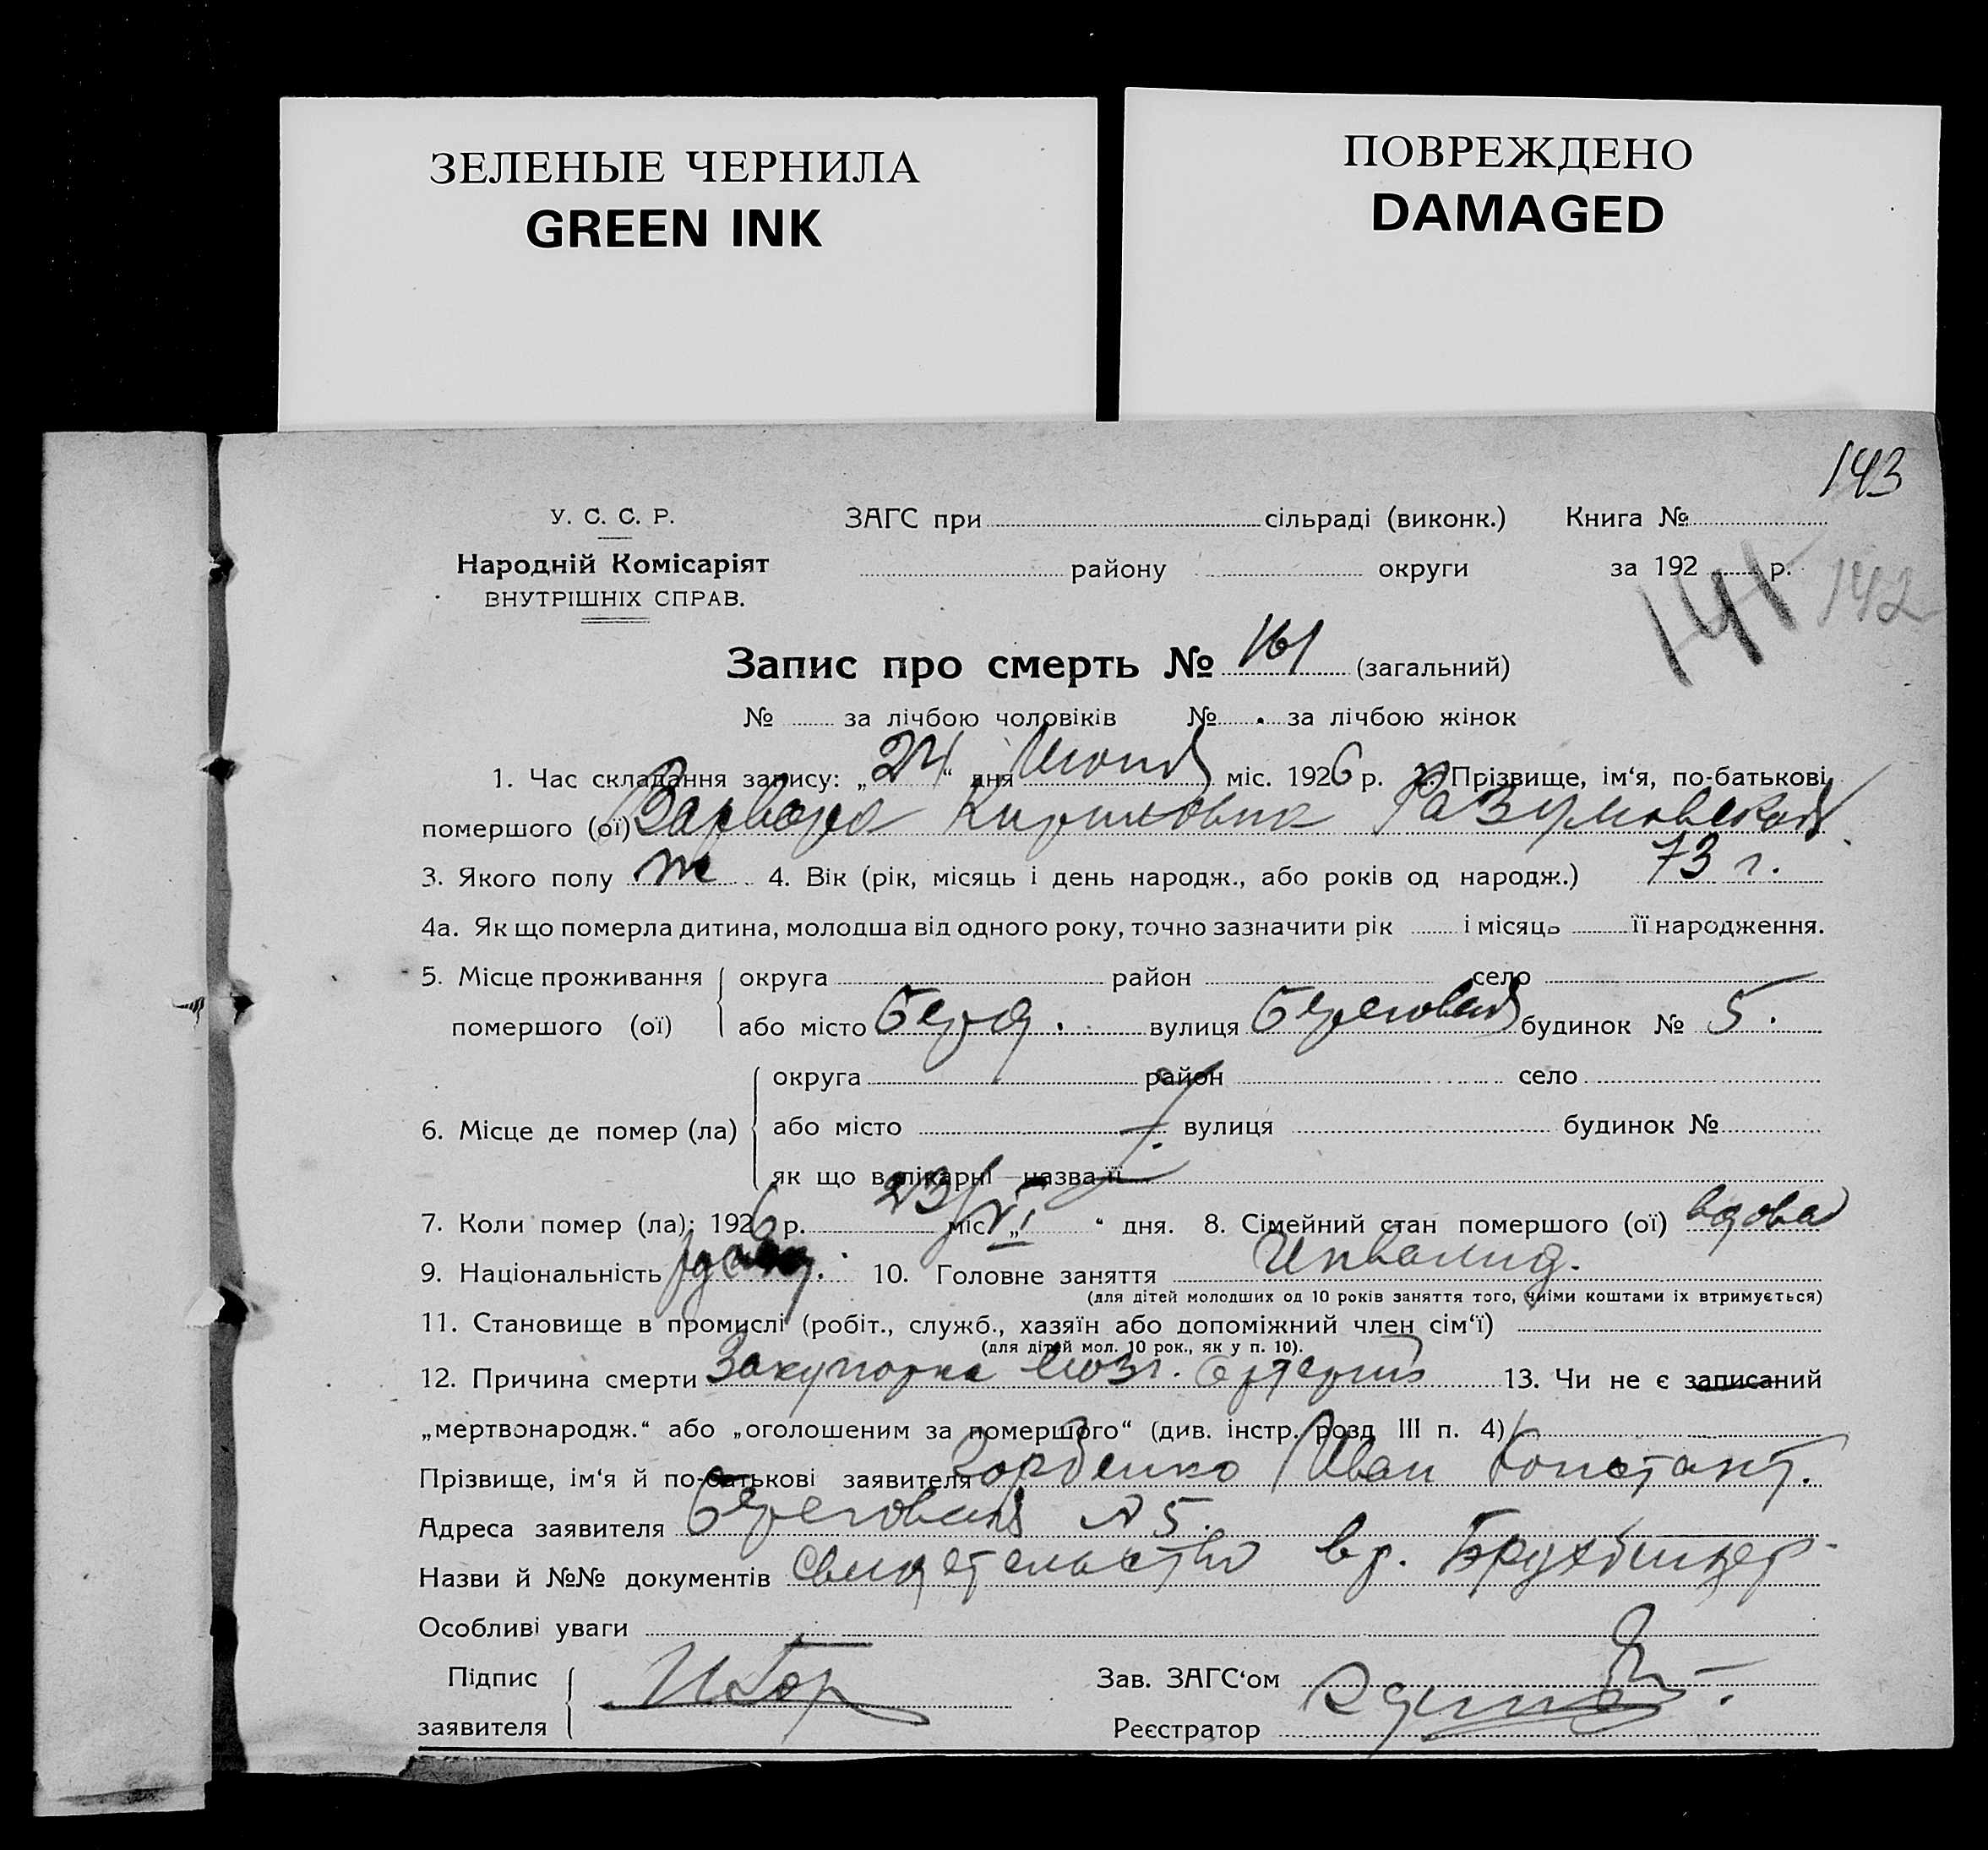 ЗЕЛЕНЫЕ ЧЕРНИЛА
GREEN INK
ПОВРЕЖДЕНО
DAMAGED
143
У. С. С. Р.
Народній Комісаріят
ВНУТРІШНІХ СПРАВ.
ЗАГС при сільраді (виконк.) Книга №
району округи за 192 р.
141 142
Запис про смерть № 161 (загальний)
№ за лічбою чоловіків № за лічбою жінок
1. Час складання запису: „24“ дня Июня міс. 1926 р. 2. Прізвище, ім‘я, по-батькові
помершого (ої) Варвара Кириловна Разумовская
3. Якого полу ж 4. Вік (рік, місяць і день народж., або років од народж.) 73 г.
4а. Як що померла дитина, молодша від одного року, точно зазначити рік і місяць її народження.
5. Місце проживання округа район село
помершого (ої) або місто Берд. вулиця Береговая будинок № 5.
округа район село
6. Місце де помер (ла) або місто вулиця будинок №
як що в лікарні назва її
7. Коли помер (ла); 1926 р. 23/VI міс. „ “ дня. 8. Сімейний стан помершого (ої) вдова
9. Національність 10. Головне заняття Инвалид.
(для дітей молодших од 10 років заняття того, чиїми коштами їх втримується)
11. Становище в промислі (робіт., служб., хазяїн або допоміжний член сім‘ї)
(для дітей мол. 10 рок., як у п. 10).
12. Причина смерти Закупорка мозг. артерий 13. Чи не є записаний
„мертвонародж.“ або „оголошеним за помершого“ (див. інстр. розд. III п. 4)
Прізвище, ім‘я й по-батькові заявителя Горбенко Иван Констант.
Адреса заявителя Береговая № 5.
Назви й №№ документів Свидетельство вр.
Особливі уваги
Підпис
заявителя
Зав. ЗАГС‘ом
Реєстратор